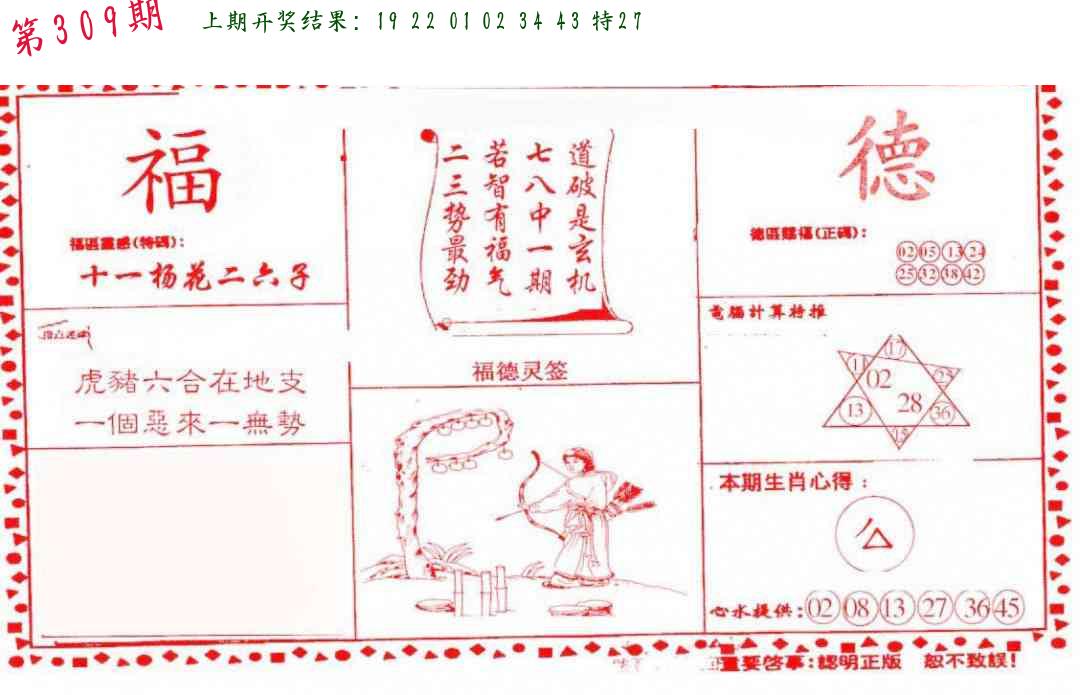 第309期
上期开奖结果：19 22 01 02 34 43 特27
福
福區靈感(特碼)：
十一杨花二六子
虎豬六合在地支
一個惡來一無勢
道破是玄机
七八中一期
若智有福气
二三势最劲
福德灵签
德
德區賜福(正碼)：
02 05 13 24
25 32 38 42
電腦計算特推
17
11 02 23
13 28 36
15
本期生肖心得：
心水提供：02 08 13 27 36 45
重要啓事：認明正版 恕不致誤！